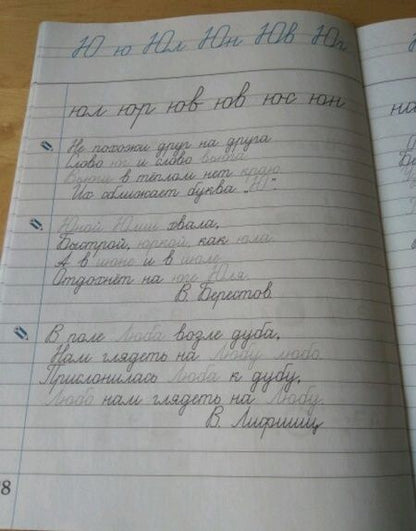 Ю ю Юл Юн Юв Юг
юл юр юв юв юс юн
Не похожи друг на друга
Слово юг и слово вьюга.
Вьюги в тёплом нет краю
Их сближает буква „Ю"
Юной Юлии хвала,
Быстрой, юркой, как юла.
А в июне и в июле
Отдохнёт на юге Юля.
В. Берестов
В поле Люба возле дуба,
Нам глядеть на Любу любо.
Прислонилась Люба к дубу,
Любо нам глядеть на Любу.
В. Лифшиц
8